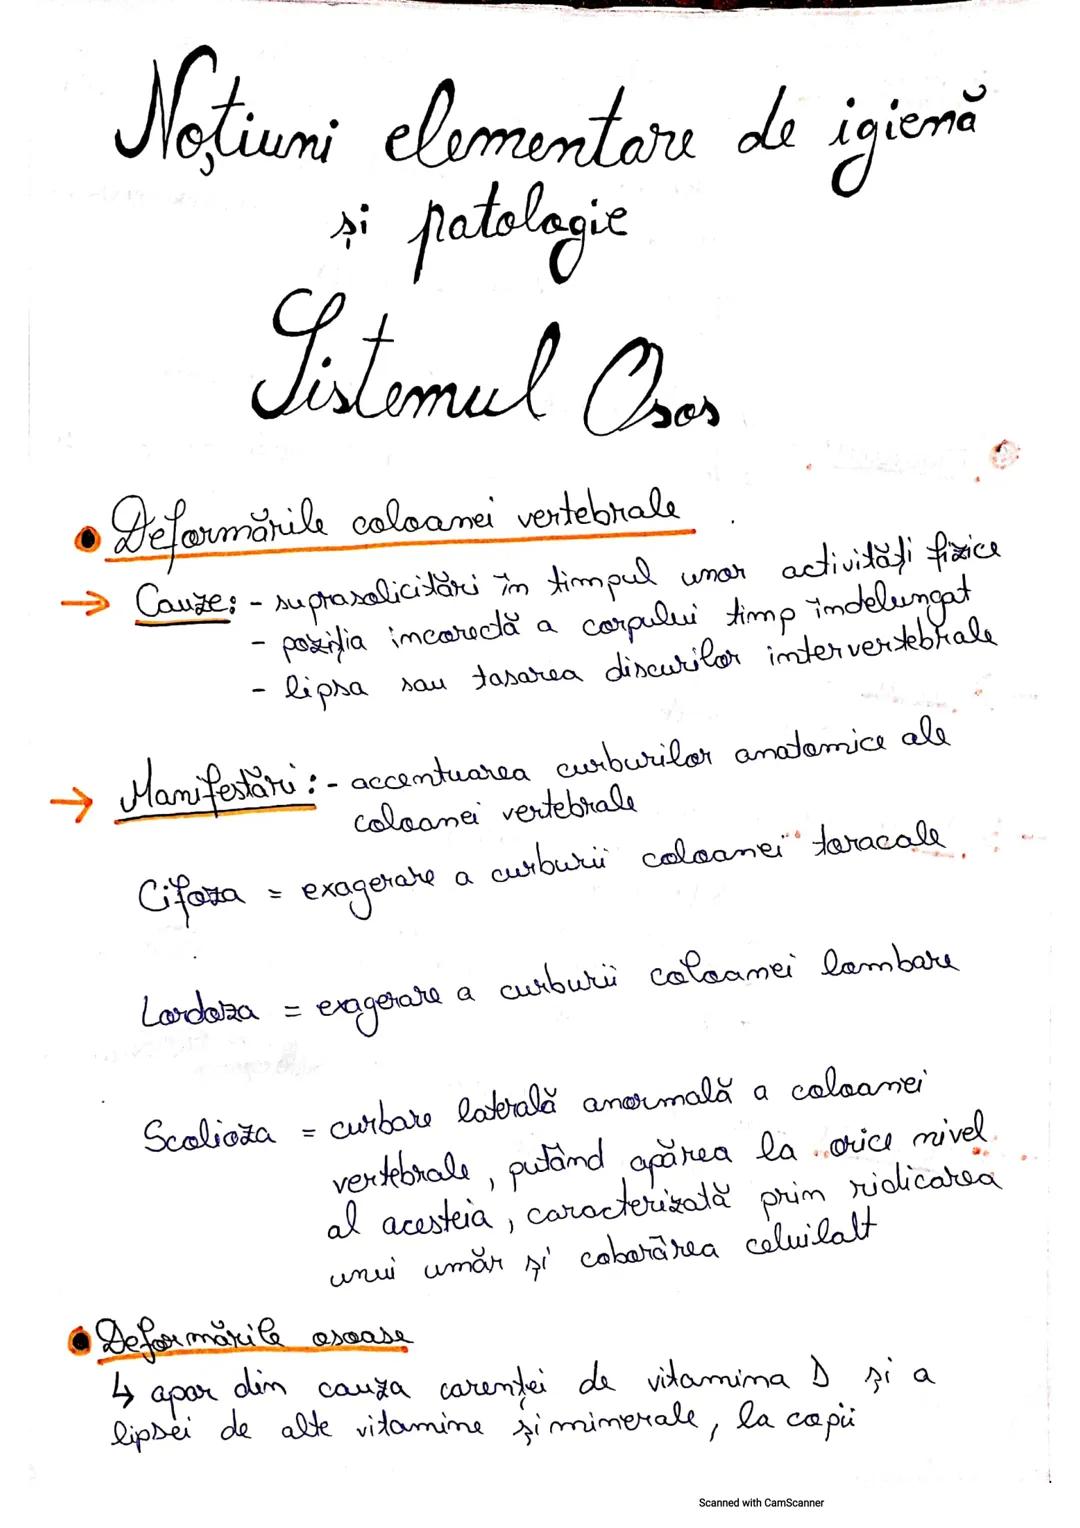 Noțiuni elementare de igienă
și patologie
Sistemul Osos
• Deformările coloanei vertebrale
→ Cauze: - suprasolicitări în timpul unor activități fizice
- poziția incorectă a corpului timp îndelungat
- lipsa sau tasarea discurilor intervertebrale
→ Manifestări: - accentuarea curburilor anatomice ale
coloanei vertebrale
Cifoza = exagerare a curburii coloanei toracale
Lordoza = exagerare a curburii coloanei lombare
Scolioza = curbare laterală anormală a coloanei
vertebrale, putând apărea la orice nivel
al acesteia, caracterizată prin ridicarea
unui umăr și coborârea celuilalt
• Deformările osoase
↳ apar din cauza carenței de vitamina D și a
lipsei de alte vitamine și minerale, la copii
Scanned with CamScanner